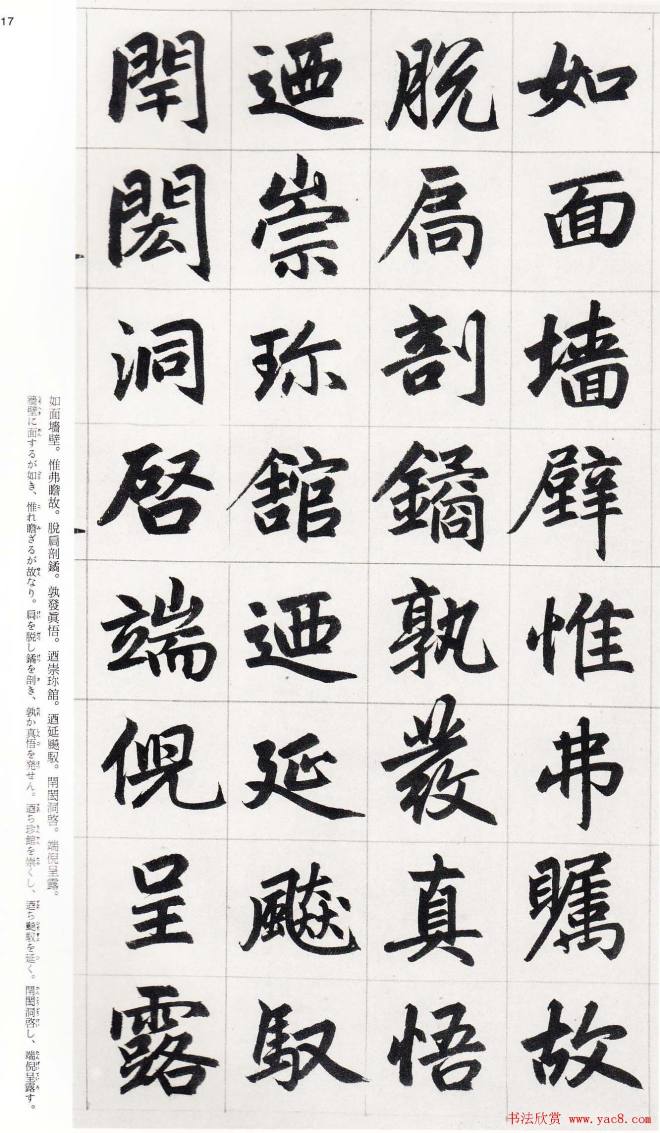 17
如面墻壁惟弗矚故
脱扃剖鐍孰發真悟
迺崇珎舘迺延飇馭
閈閎洞啓端倪呈露
如面墻壁。惟弗瞻故。脱扃剖鐍。孰發眞悟。迺崇珎舘。迺延飇馭。閈閎洞啓。端倪呈露。
牆壁に面するが如き、惟れ瞻ざるが故なり。扃を脱し鐍を剖き、孰か真悟を発せん。迺ち珍館を崇くし、迺ち飇馭を延く。閈閎洞啓し、端倪呈露す。
书法欣赏 www.yac8.com